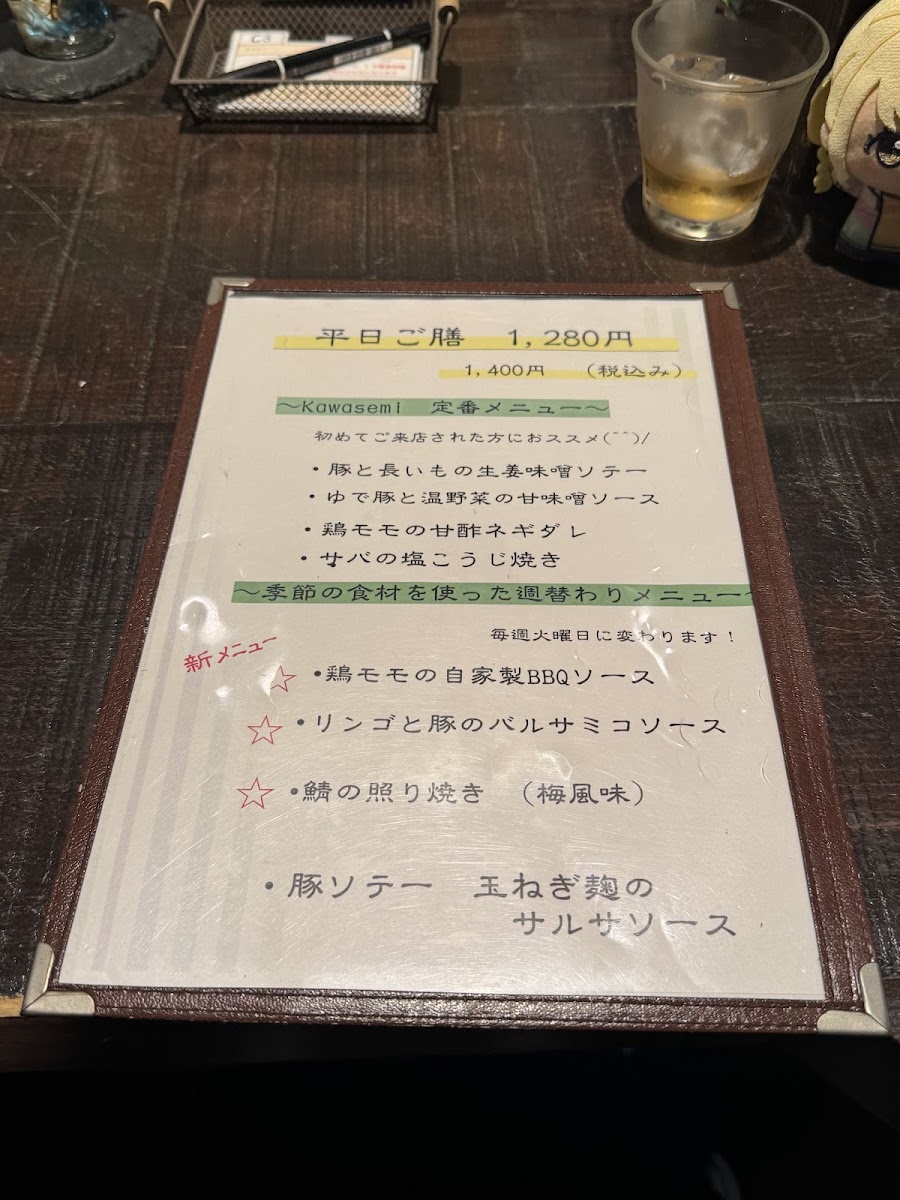 平日ご膳 1,280円
1,400円 (税込み)
~Kawasemi 定番メニュー~
初めてご来店された方におススメ(^^)/
・豚と長いもの生姜味噌ソテー
・ゆで豚と温野菜の甘味噌ソース
・鶏モモの甘酢ネギダレ
・サバの塩こうじ焼き
~季節の食材を使った週替わりメニュー~
毎週火曜日に変わります!
新メニュー
☆ ・鶏モモの自家製BBQソース
☆ ・リンゴと豚のバルサミコソース
☆ ・鯖の照り焼き (梅風味)
・豚ソテー 玉ねぎ麹の
サルサソース